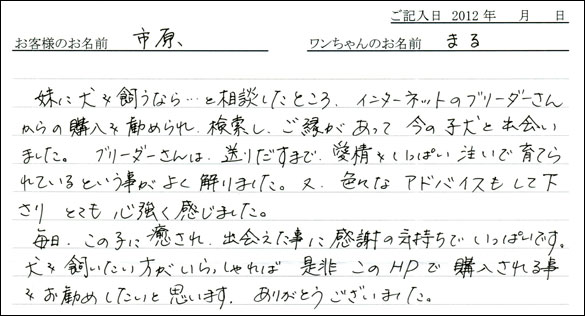 ご記入日 2012年 月 日
お客様のお名前 市原、 ワンちゃんのお名前 まる
妹に犬を飼うなら…と相談したところ、インターネットのブリーダーさん
からの購入を勧められ、検索し、ご縁があって今の子犬と出会い
ました。 ブリーダーさんは、送りだすまで、愛情をいっぱい注いで育てら
れているという事がよく解りました。又、色々なアドバイスもして下
さり とても心強く感じました。
毎日、この子に癒され、出会えた事に感謝の気持ちでいっぱいです。
犬を飼いたい方がいらっしゃれば 是非このHPで購入される事
をお勧めしたいと思います。ありがとうございました。